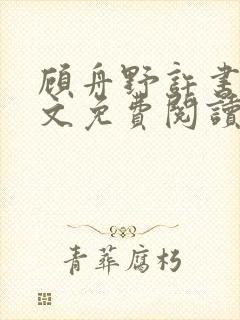 顾舟野許書
文免費閱讀
青葬腐朽